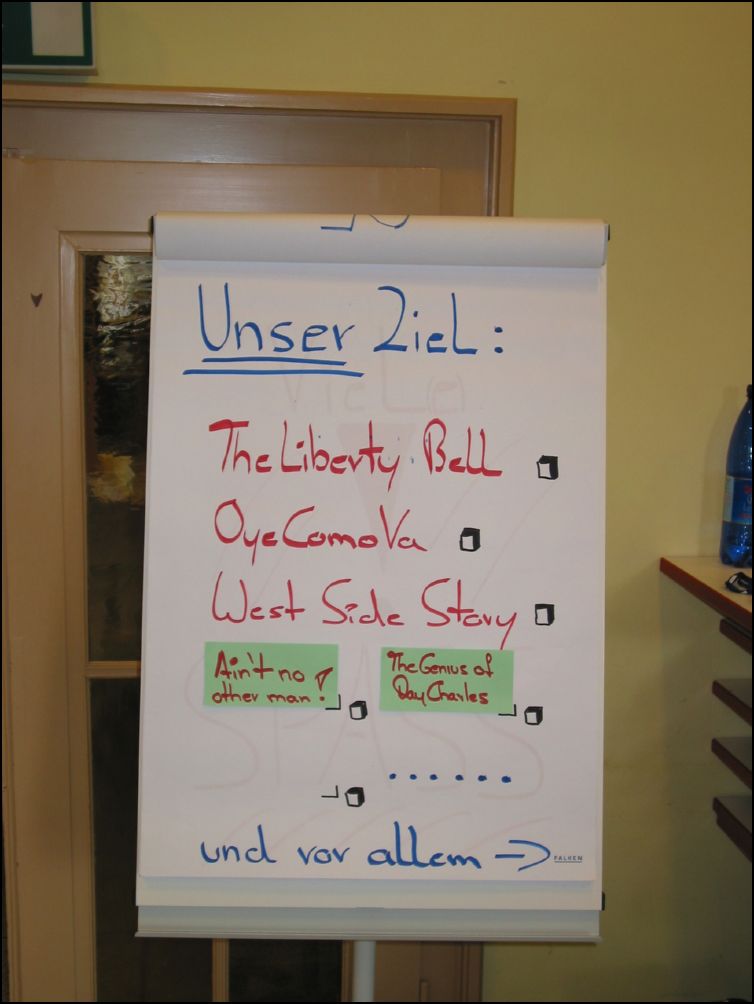 Unser Ziel:
The Liberty Bell
Oye Como Va
West Side Story
Ain't no other man!
The Genius of Ray Charles
......
und vor allem →
FALKEN
Viel
SPASS